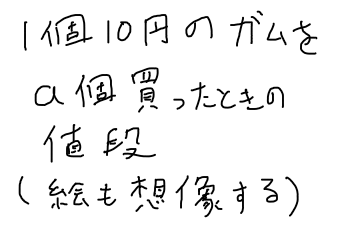 1個10円のガムを
a個買ったときの
値段
(絵も想像する)